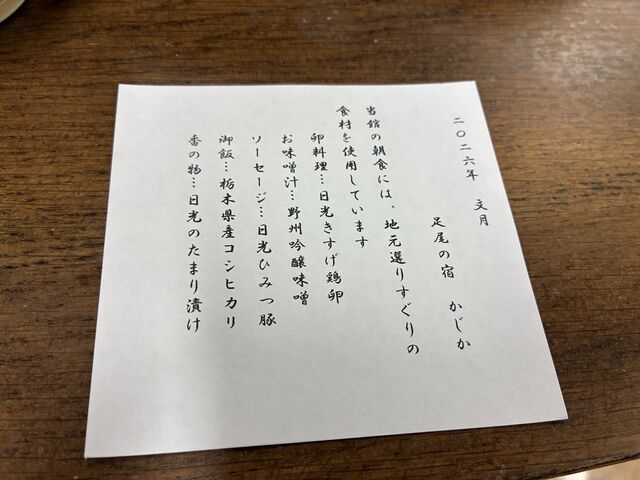 二〇二六年　文月
足尾の宿　かじか
当館の朝食には、地元選りすぐりの
食材を使用しています
卵料理…日光きすげ鶏卵
お味噌汁…野州吟醸味噌
ソーセージ…日光ひみつ豚
御飯…栃木県産コシヒカリ
香の物…日光のたまり漬け